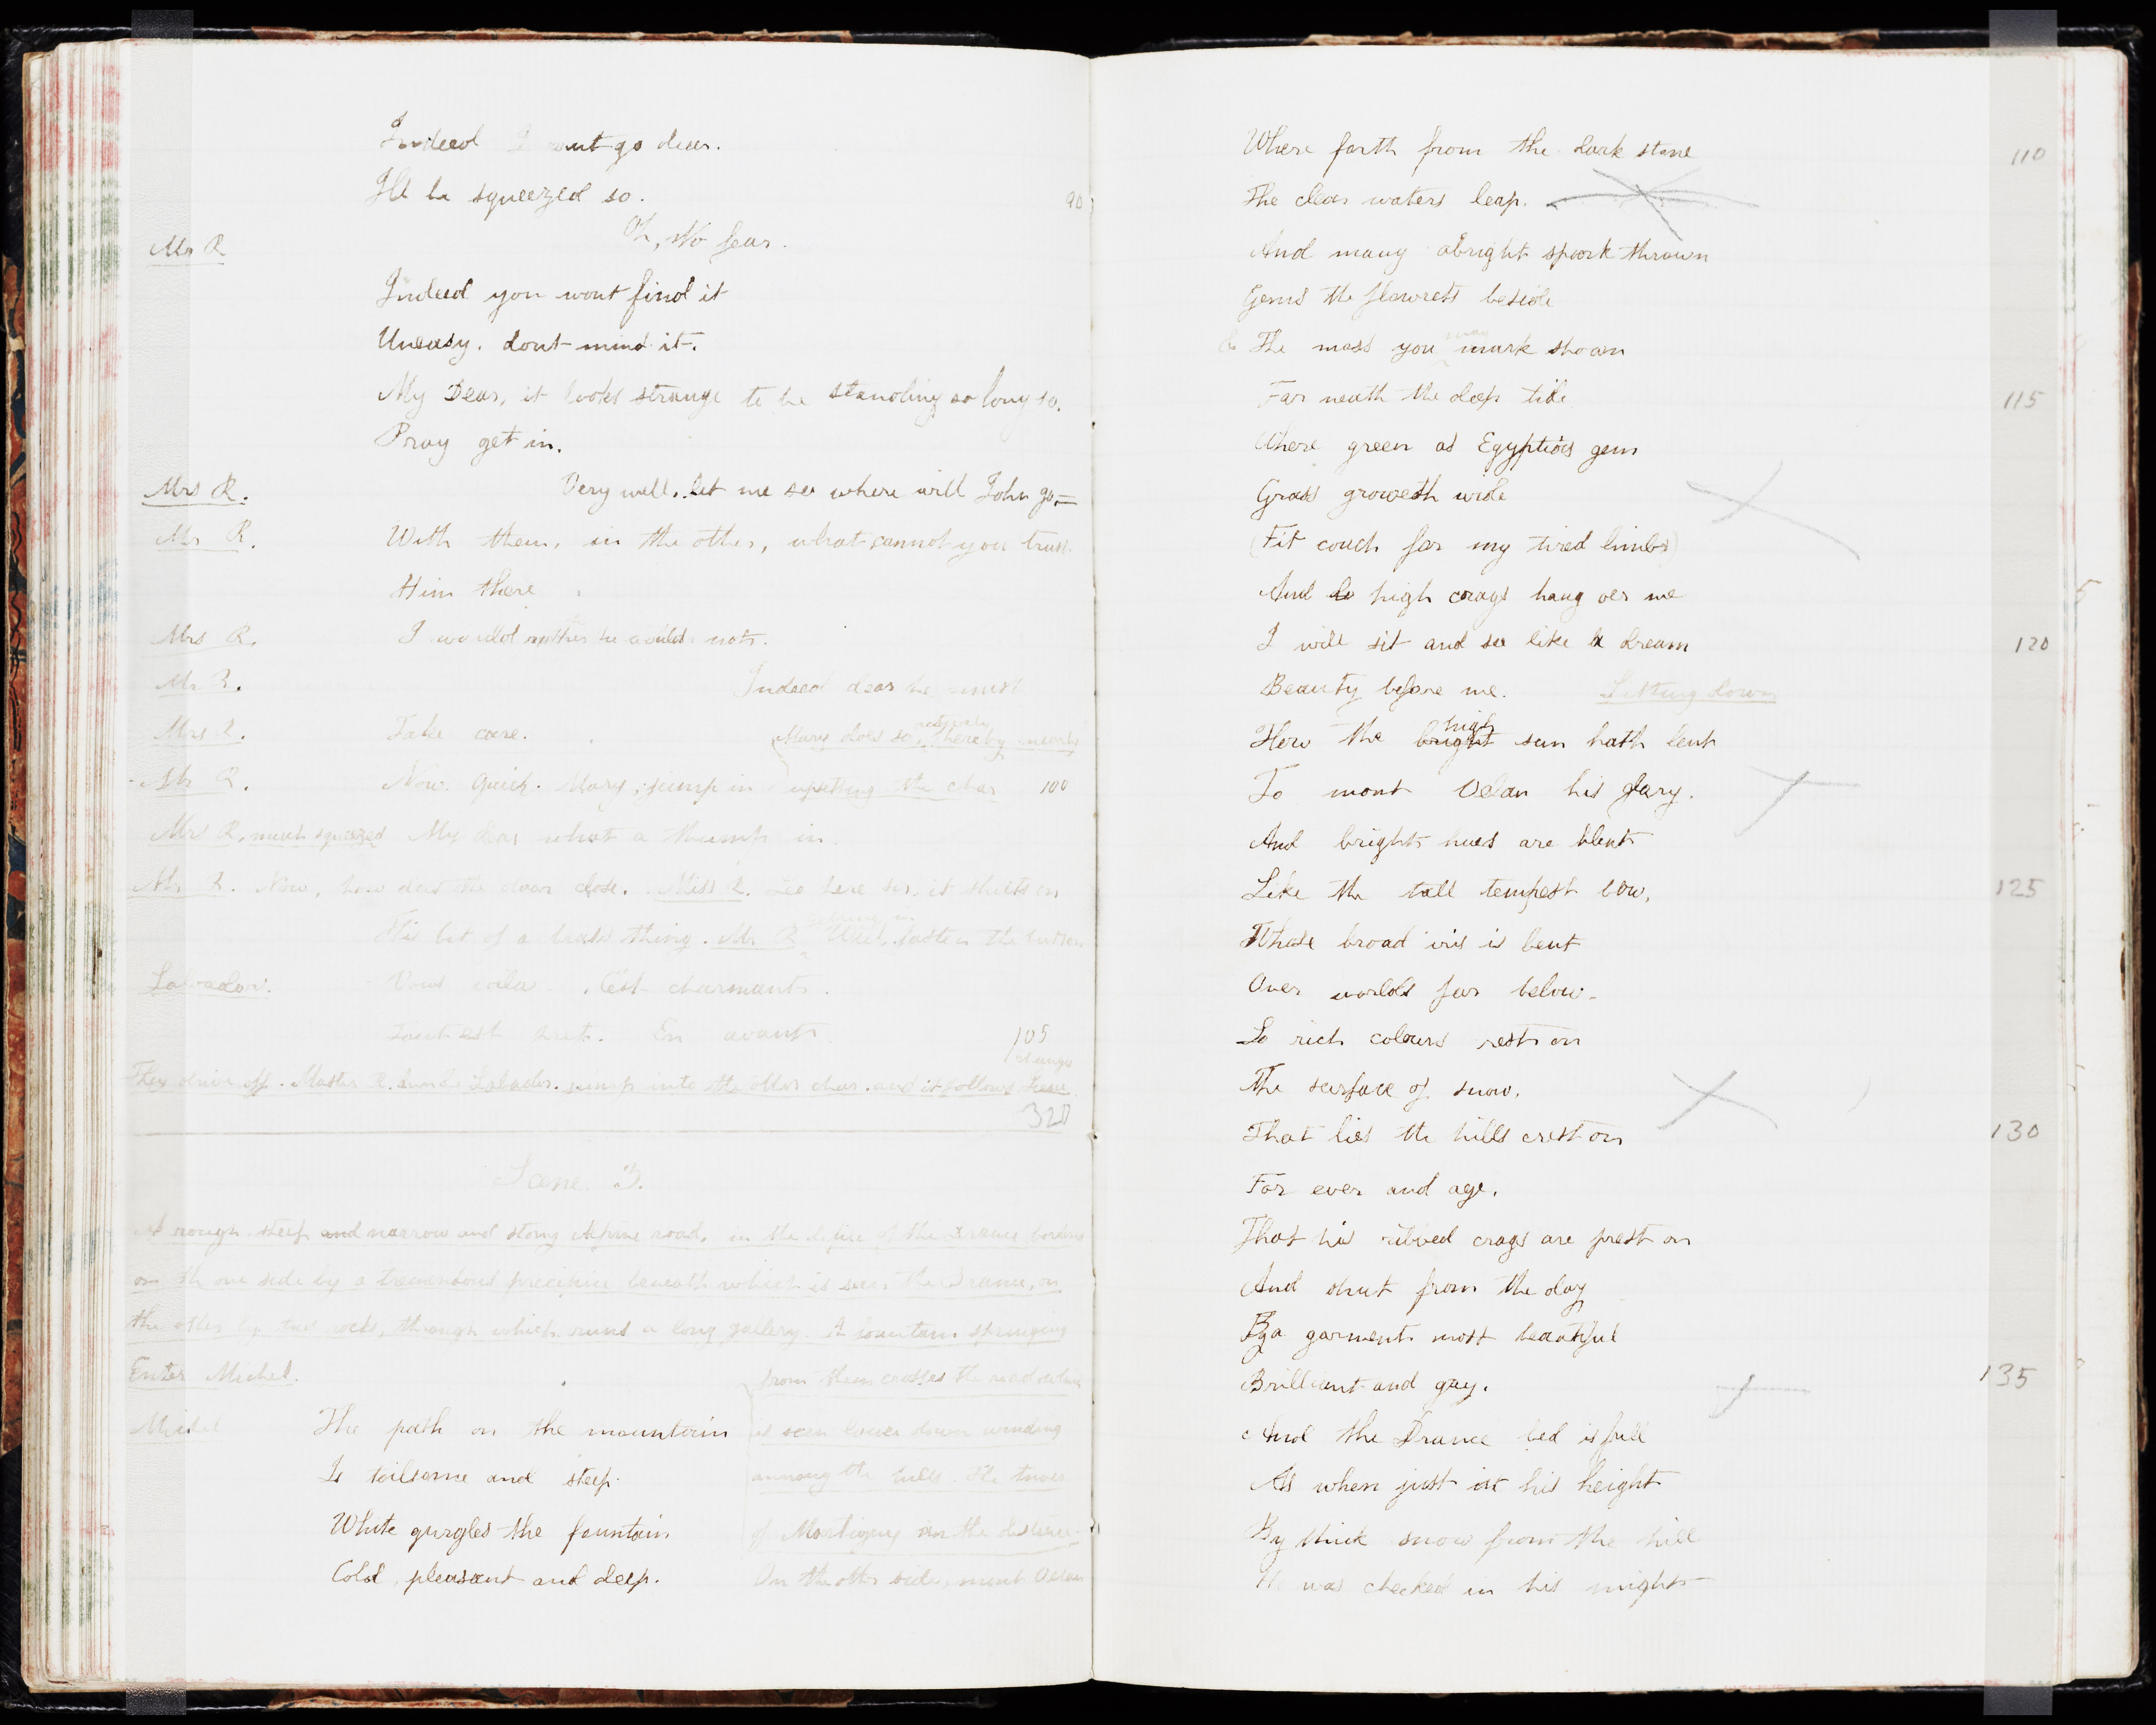 Indeed I wont go dear.
Ill be squeezed so. 90
Mr R Oh, No fear.
Indeed you wont find it
Uneasy. dont mind it.
My Dear, it looks strange to be standing so long so.
Pray get in.
Mrs R. Very well. let me see where will John go,—
Mr R. With them, in the other, what cannot you trust
Him there
Mrs R. I would rather he would not.
Mr R. Indeed dear he must
Mrs R. Take care. Mary does so, thereby nearly
Mr R. Now. Quick. Mary, jump in upsetting the char 100
Mrs R. much squeezed My dear what a thump in.
Mr R. Now, how does the door close. Miss R. See here sir, it shuts on
This bit of a brass thing. Mr R getting in Well, fasten the button
Salvador. Vous voila. C'est charmant.
Tout est pret. En avant 105
They drive off. Master R. and Salvador. jump into the other char. and it follows Scene changes
328
Scene. 3.
A rough steep and narrow and stony Alpine road, in the defile of the Drance bordered
on the one side by a tremendous precipice beneath which is seen the Drance, on
the other by rocks, through which runs a long gallery. A fountain springing
Enter Michel. from them crosses the road which
Michel The path on the mountain is seen lower down winding
Is toilsome and steep. among the hills. The tower
White gurgles the fountain of Martigny in the distance.
Cold, pleasant and deep. On the other side, mont Velan
Where forth from the dark stone 110
The clear waters leap.
And many a bright spark thrown
Gems the flowrets beside
& The moss you may mark shown
Far neath the deep tide 115
Where green as Egyptias gem
Grass groweth wide
(Fit couch for my tired limbs)
And lo high crags hang oer me
I will sit and see like a dream 120
Beauty before me. Sitting down
How the bright high sun hath lent
To mont Velan his glory.
And bright hues are blent
Like the tall tempest bow, 125
Whose broad iris is bent
Over worlds far below.
So rich colours rest on
The surface of snow.
That lies the hills crest on 130
For ever and aye.
That his ribbed crags are prest on
And shut from the day
By a garment most beautiful
Brilliant and gay. 135
And the Drance bed is full
As when just at his height
By thick snow from the hill
He was checked in his might